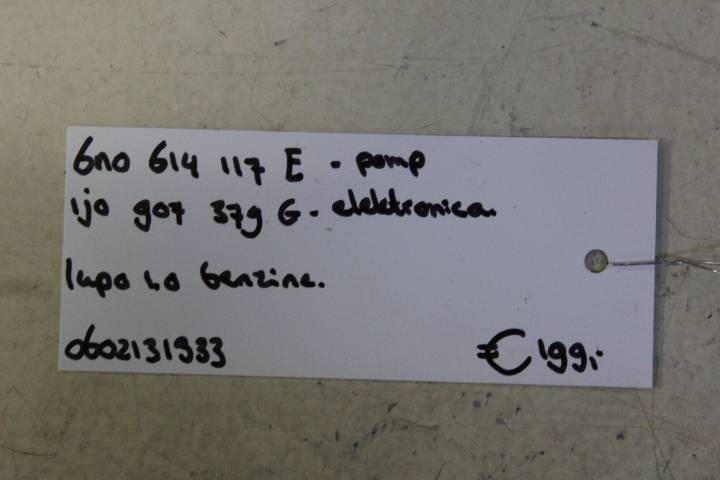 6n0 614 117 E - pomp
1j0 907 379 G - elektronica.
lupo 1.0 benzine.
0602131933
€ 199,-